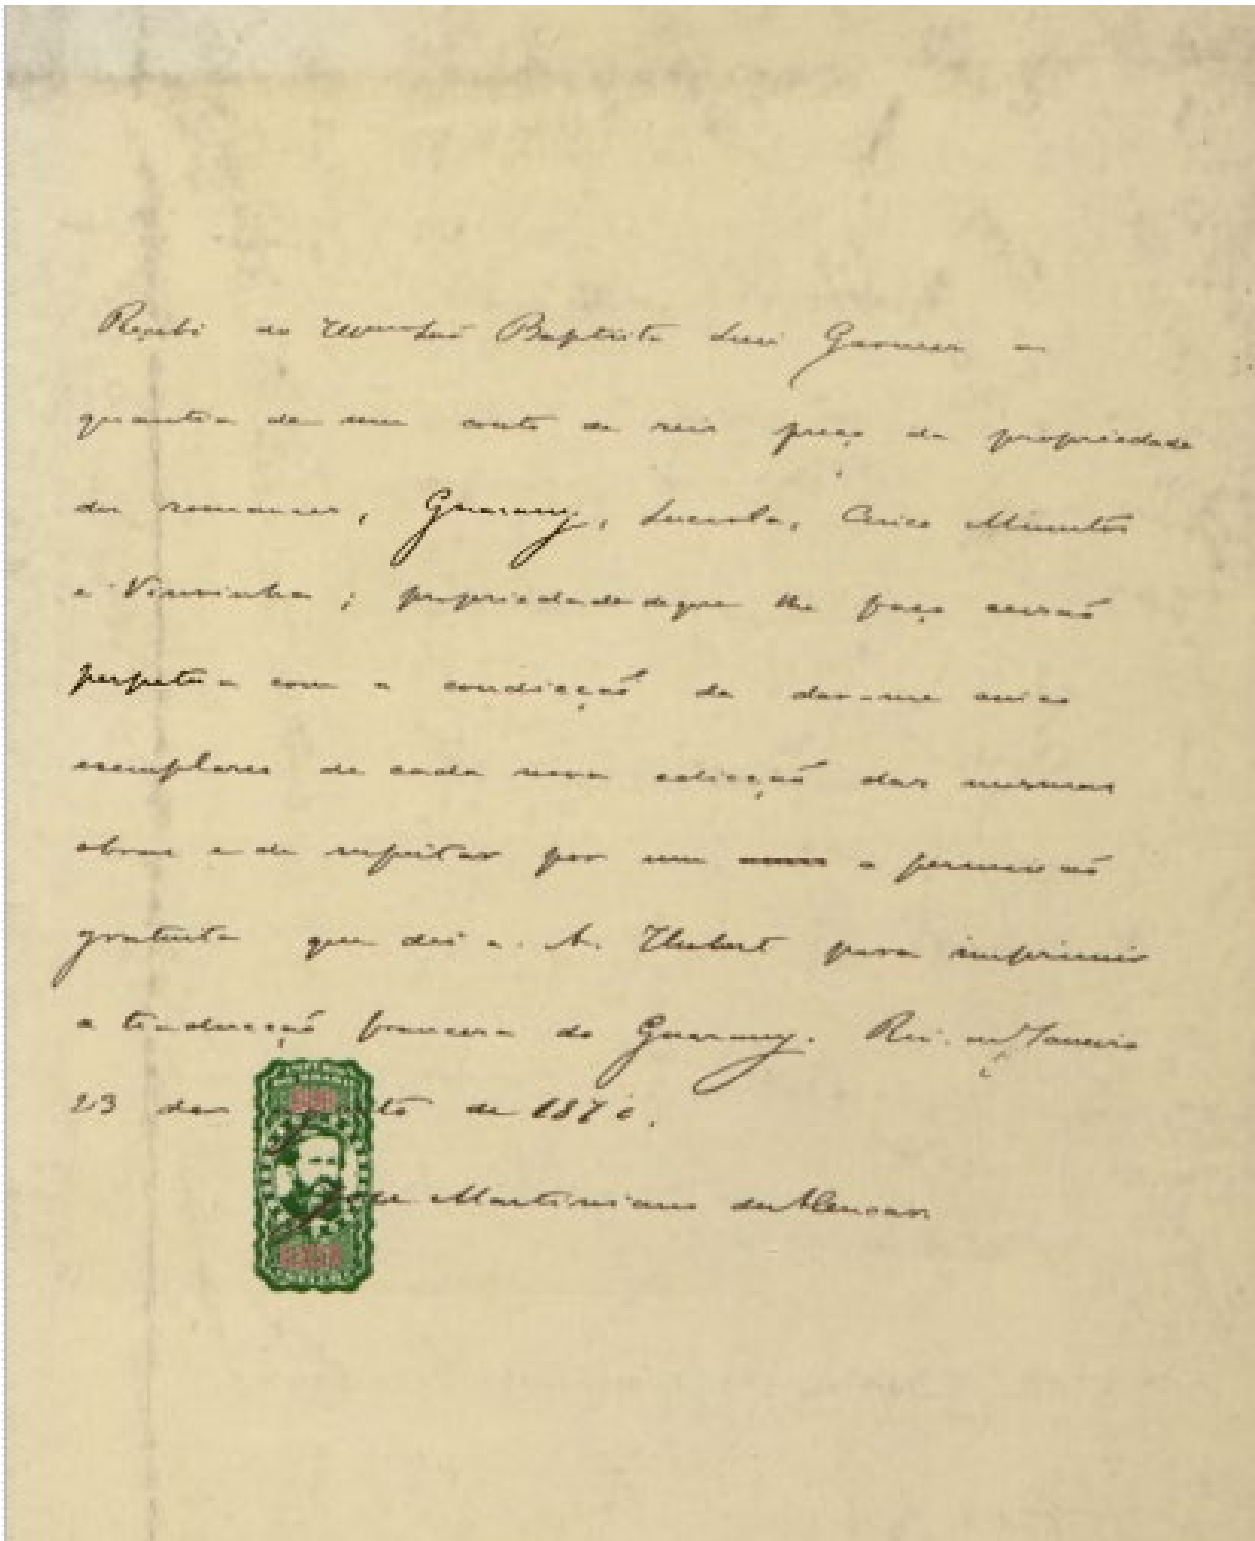 Recebi do Illmo Snr Baptista Luiz Garnier a
quantia de um conto de reis preço da propriedade
dos romances, Guarany, Luciola, Cinco Minutos
e Viuvinha; propriedade de que lhe faço cessaõ
perpetua com a condicçaõ de dar-me cinco
exemplares de cada nova edicçaõ das mesmas
obras e de respeitar por um a permissaõ
gratuita que dei a A. Hubert para imprimir
a traducçaõ franceza do Guarany. Rio de Janeiro
23 de to de 1870.
José Martiniano de Alencar